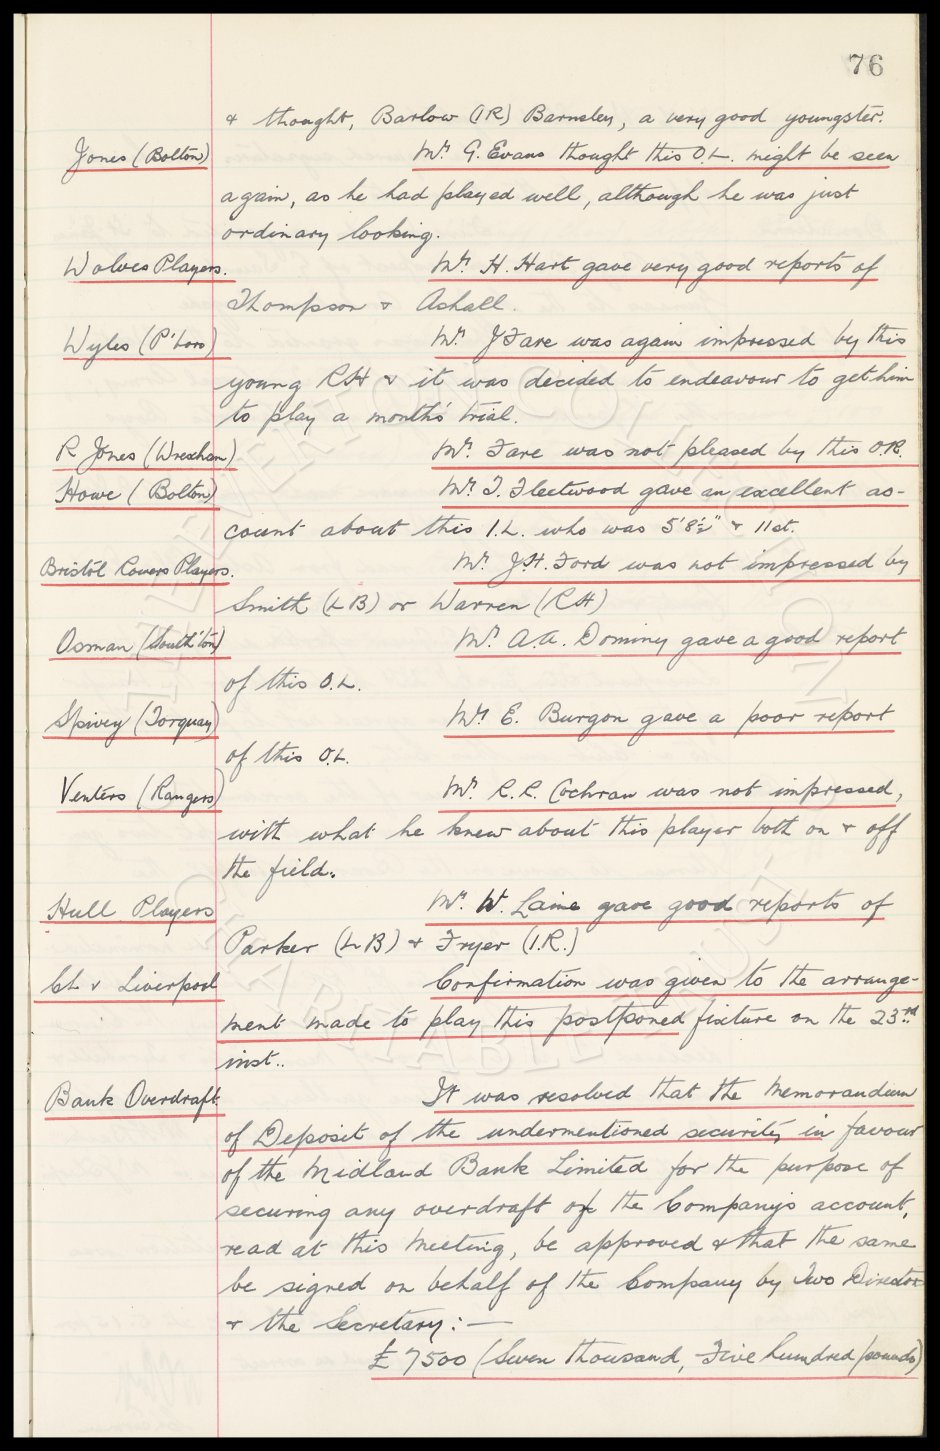 76
& thought, Barlow (I R) Barnsley, a very good youngster.
Jones (Bolton) Mr. G. Evans thought this O.L. might be seen
again, as he had played well, although he was just
ordinary looking.
Wolves Players. Mr. H. Hart gave very good reports of
Thompson & Ashall.
Wyles (P'boro) Mr. J Fare was again impressed by this
young RH & it was decided to endeavour to get him
to play a month's trial.
R Jones (Wrexham) Mr. Fare was not pleased by this O.R.
Howe (Bolton) Mr. T. Fleetwood gave an excellent ac-
count about this I.L. who was 5'8½" & 11st.
Bristol Rovers Players. Mr. J.H. Ford was not impressed by
Smith (L B) or Warren (RH)
Osman (South'ton) Mr. A.A. Dominy gave a good report
of this O.L.
Spivey (Torquay) Mr. E. Burgon gave a poor report
of this O.L.
Venters (Rangers) Mr. R. R. Cochran was not impressed,
with what he knew about this player both on & off
the field.
Hull Players Mr. W. Laine gave good reports of
Parker (L B) & Fryer (I.R.)
CL v Liverpool Confirmation was given to the arrange-
ment made to play this postponed fixture on the 23rd.
inst..
Bank Overdraft. It was resolved that the Memorandum
of Deposit of the undermentioned security in favour
of the Midland Bank Limited for the purpose of
securing any overdraft on the Company's account,
read at this Meeting, be approved & that the same
be signed on behalf of the Company by Two Director
& the Secretary:—
£7500 (Seven thousand, Five hundred pounds)
THE EVERTON COLLECTION
CHARITABLE TRUST